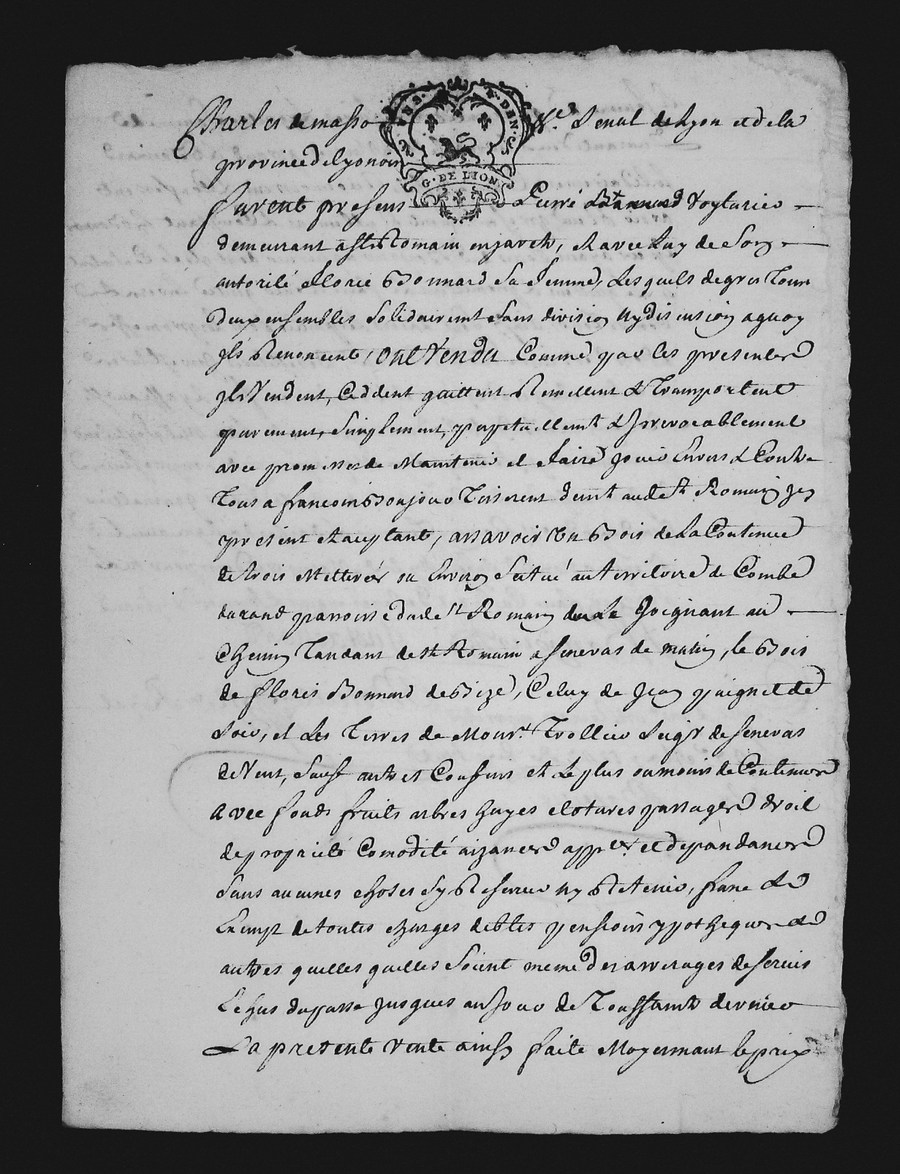 Charles de masso Sr. Senal de Lyon et de la
province de lyonois
G. DE LION
furent presens Pierre Bonnard Voyturier
demeurant a St Romain en jarets, et avec luy de son
autorité florie Bonnard sa femme, Lesquels de gres Tous
deux ensembles solidairemt sans division ny discusion a quoy
ils Renoncent, ont Vendu Comme par les presentes
ils Vendent, Ceddent quittent Remettent et Transportent
purement, simplement, perpetuellemt et irrevocablement
avec promesses de Maintenir et faire jouir Envers et Contre
Tous a francois Bonjour Tisserent demt audt St Romain jcy
présent et aceptant, assavoir Un Bois de La Contenue
de trois Metterées ou Environ Situé au Territoire de Combe
durand parroisse dudt St Romain Joignant au
Chemin Tandant de St Romain a senevas de matin, le Bois
de floris Bonnard de Bize, Celuy de Jean de
soir, et Les Terres de Monsr. Trollier Seigr de senevas
de Vent, sauf autres Confins et Le plus ou moins de Contenue
avec fonds fruits arbres hayes clotures passages droit
de propriété Comodité aizances appces et depandances
sans aucunes choses s'y Reserver ny Retenir, franc et
Exempt de toutes charges debtes pensions ypotheques et
autres quelles quelles soient meme des arrerages de servis
Echus du passé jusques au jour de Toussaints dernier
La presente vente ainsy faite Moyennant le prix